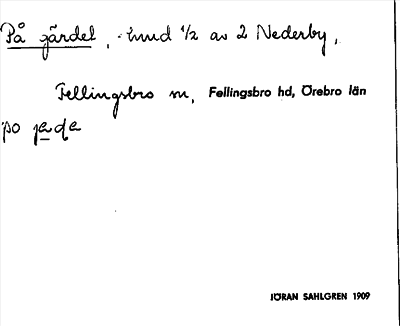 På gärdet, hmd 1/2 av 2 Nederby,
Fellingsbro sn, Fellingsbro hd, Örebro län
po
JÖRAN SAHLGREN 1909